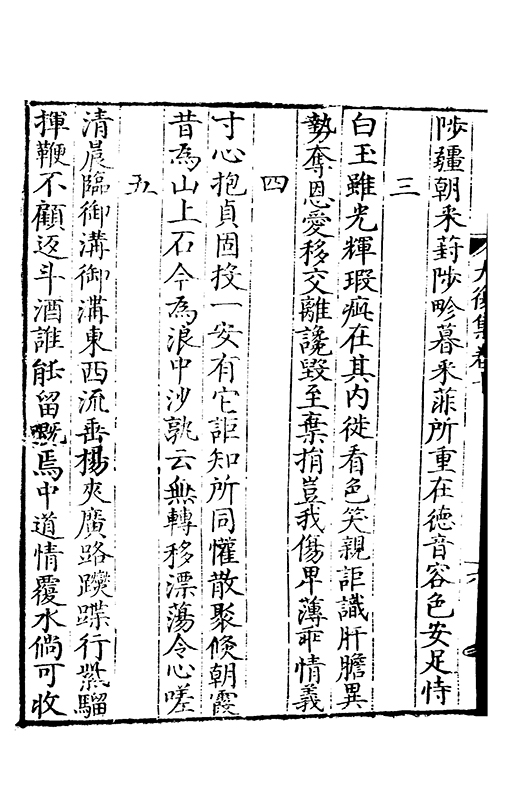 陟疆朝采葑陟畛暮采菲所重在德音容色安足恃
三
白玉雖光輝瑕疵在其內徙看色笑親詎識肝膽異
勢奪恩愛移交離讒毀至棄捐豈我傷卑薄乖情義
四
寸心抱貞固投一安有它詎知所同懽散聚倏朝霞
昔為山上石今為浪中沙孰云無轉移漂蕩令心嗟
五
清晨臨御溝御溝東西流垂楊夾廣路躞蹀行紫騮
揮鞭不顧返斗酒誰能留嘅焉中道情覆水倘可收